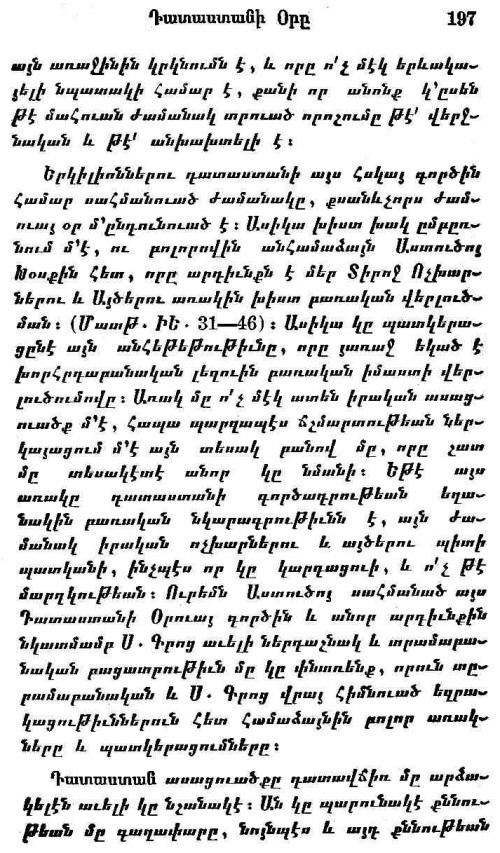 Դատաստանի Օրը 197
այն առաջինին կրկնումն է, և որը ո՛չ մէկ երևակա-
յելի նպատակի համար է, քանի որ անոնք կ՚ըսեն
թէ մահուան ժամանակ տրուած որոշումը թէ՛ վերջ-
նական և թէ՛ անխախտելի է։
Երկիլիոններու դատաստանի այս հսկայ գործին
համար սահմանուած ժամանակը, քսանևչորս ժամ-
ուայ օր մ՚ընդունուած է։ Ասիկա խիստ խակ ըմբըռ-
նում մ՚է, ու բոլորովին անհամաձայն Աստուծոյ
Խօսքին հետ, որը արդիւնքն է մեր Տիրոջ Ոչխար-
ներու և Այծերու առակին խիստ բառական վերլուծ-
ման։ (Մատթ. ԻԵ. 31—46)։ Ասիկա կը պատկերա-
ցընէ այն անհեթեթութիւնը, որը յառաջ եկած է
խորհրդաբանական լեզուին բառական իմաստի վեր-
լուծումովը։ Առակ մը ո՛չ մէկ ատեն իրական ասաց-
ուածք մ՚է, հապա պարզապէս ճշմարտութեան ներ-
կայացում մ՚է այն տեսակ բանով մը, որը շատ
մը տեսակէտէ անոր կը նմանի։ Եթէ այս
առակը դատաստանի գործադրութեան եղա-
նակին բառական նկարագրութիւնն է, այն ժա-
մանակ իրական ոչխարներու և այծերու պիտի
պատկանի, ինչպէս որ կը կարդացուի, և ո՛չ թէ
մարդկութեան։ Ուրեմն Աստուծոյ սահմանած այս
Դատաստանի Օրուայ գործին և անոր արդիւնքին
նկատմամբ Ս. Գրոց աւելի ներդաշնակ և տրամաբա-
նական բացատրութիւն մը կը փնտռենք, որուն տը-
րամաբանական և Ս. Գրոց վրայ հիմնուած եզրա-
կացութիւններուն հետ համաձայնին բոլոր առակ-
ները և պատկերացումները։
Դատաստան ասացուածքը դատավճիռ մը արձա-
կելէն աւելի կը նշանակէ։ Ան կը պարունակէ քննու-
թեան մը գաղափարը, նոյնպէս և այդ քննութեան